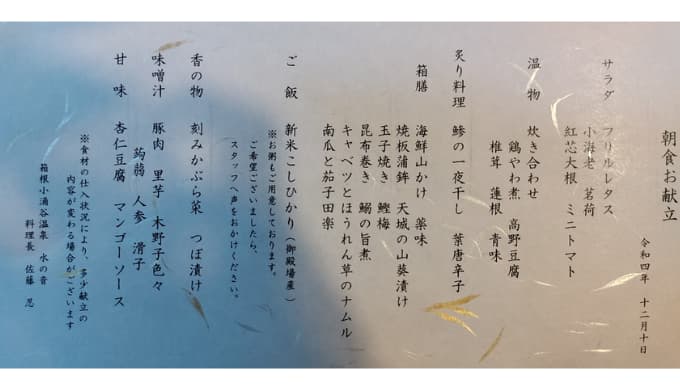 朝食お献立
令和四年 十二月十日
サラダ フリルレタス
小海老 茗荷
紅芯大根 ミニトマト
温物 炊き合わせ
鶏やわ煮 高野豆腐
椎茸 蓮根 青味
炙り料理 鯵の一夜干し 葉唐辛子
箱膳 海鮮山かけ 薬味
焼板蒲鉾 天城の山葵漬け
玉子焼き 鰹梅
昆布巻き 鰯の旨煮
キャベツとほうれん草のナムル
南瓜と茄子田楽
ご飯 新米こしひかり(御殿場産)
※お粥もご用意しております。
ご希望ございましたら、
スタッフへ声をおかけください。
香の物 刻みかぶら菜 つぼ漬け
味噌汁 豚肉 里芋 木野子色々
蒟蒻 人参 滑子
甘味 杏仁豆腐 マンゴーソース
※食材の仕入状況により、多少献立の
内容が変わる場合がございます
箱根小涌谷温泉 水の音
料理長 佐藤 忍